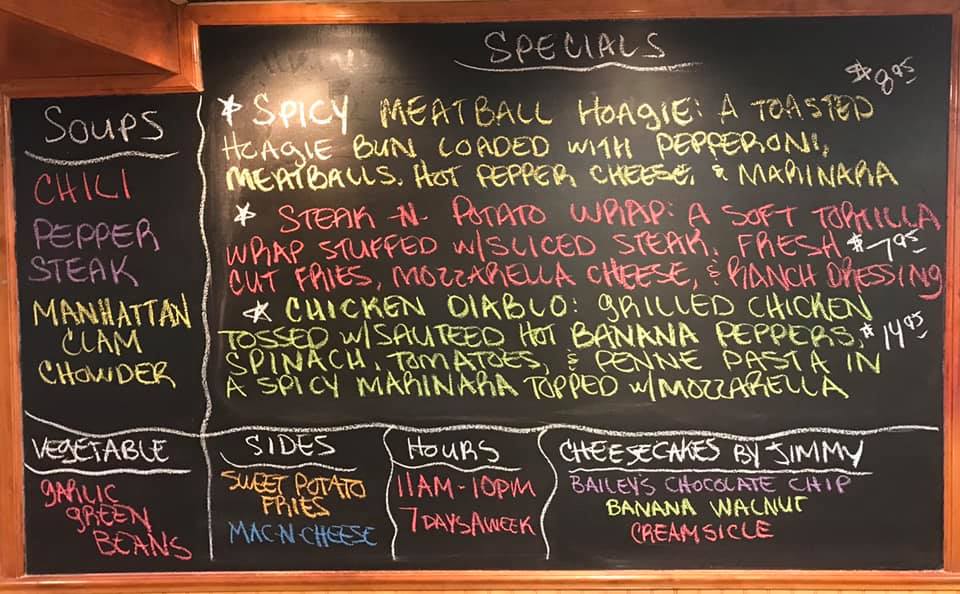 SPECIALS
$8.95
* SPICY MEATBALL HOAGIE: A TOASTED
HOAGIE BUN LOADED WITH PEPPERONI,
MEATBALLS, HOT PEPPER CHEESE, & MARINARA
* STEAK -N- POTATO WRAP: A SOFT TORTILLA
WRAP STUFFED W/SLICED STEAK, FRESH $7.95
CUT FRIES, MOZZARELLA CHEESE, & RANCH DRESSING
* CHICKEN DIABLO: GRILLED CHICKEN
TOSSED W/SAUTEED HOT BANANA PEPPERS, $14.95
SPINACH, TOMATOES, & PENNE PASTA IN
A SPICY MARINARA TOPPED W/MOZZARELLA
SOUPS
CHILI
PEPPER
STEAK
MANHATTAN
CLAM
CHOWDER
VEGETABLE
GARLIC
GREEN
BEANS
SIDES
SWEET POTATO
FRIES
MAC-N-CHEESE
HOURS
11AM-10PM
7 DAYS A WEEK
CHEESECAKES BY JIMMY
BAILEY'S CHOCOLATE CHIP
BANANA WALNUT
CREAMSICLE